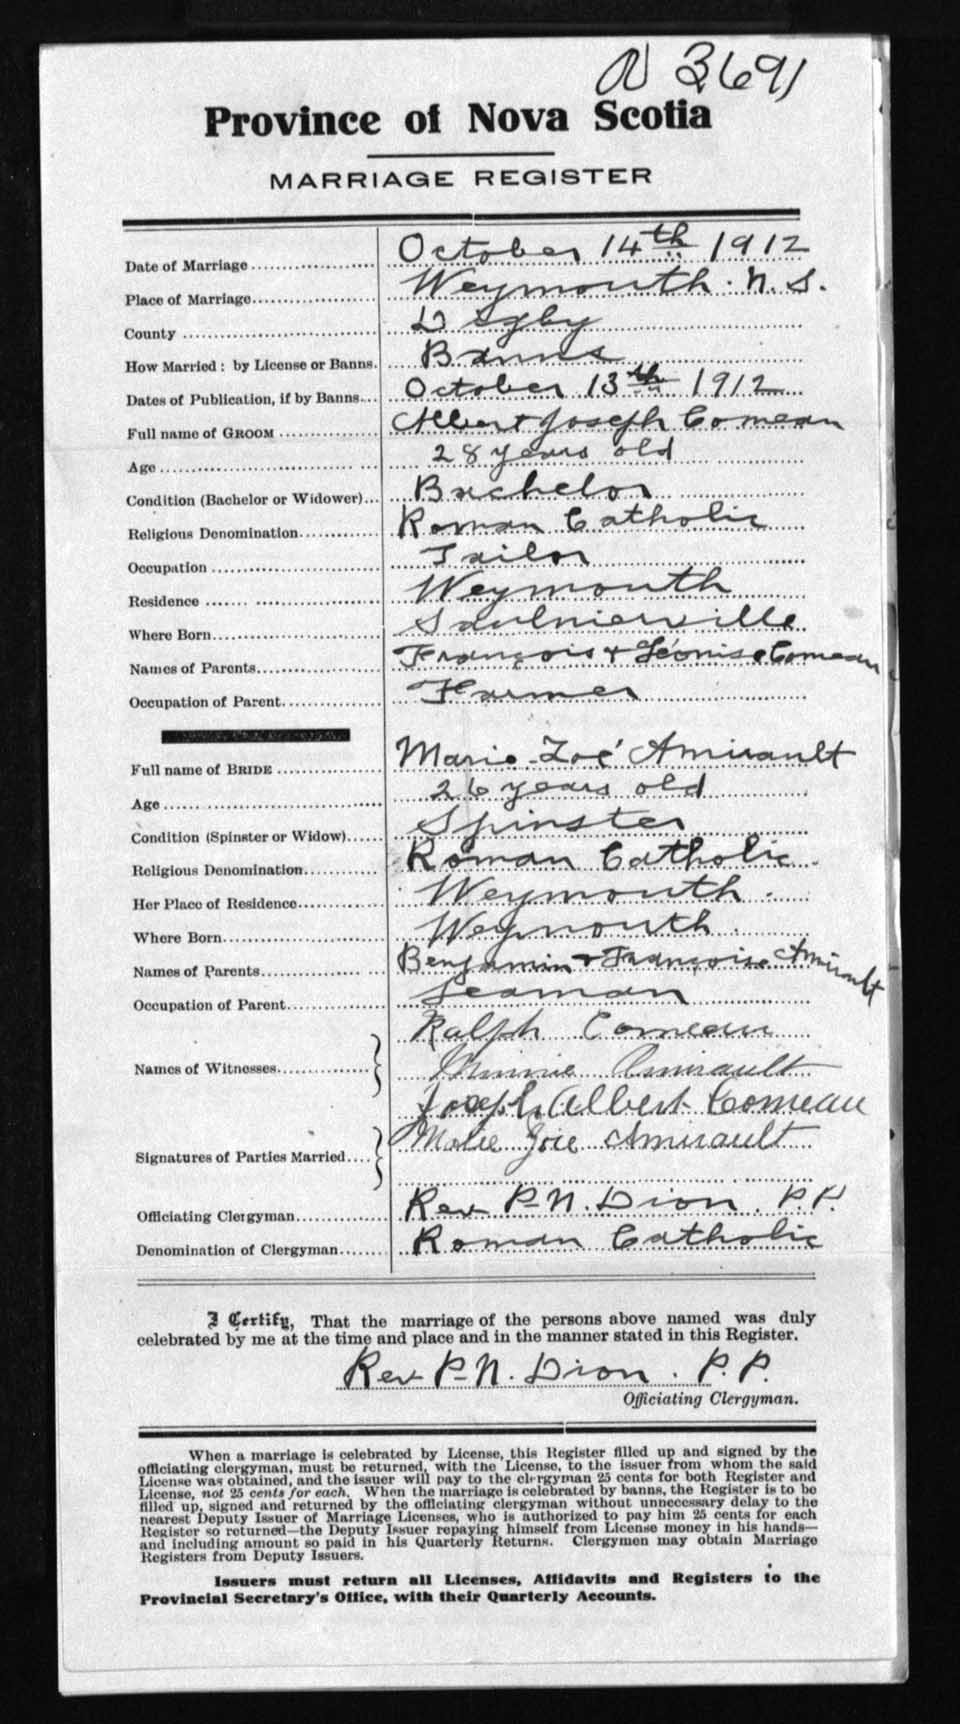 N 3691
Province of Nova Scotia
MARRIAGE REGISTER
Date of Marriage October 14th 1912
Place of Marriage Weymouth. N. S.
County Digby
How Married: by License or Banns. Banns
Dates of Publication, if by Banns October 13th 1912
Full name of GROOM Albert Joseph Comeau
Age 28 years old
Condition (Bachelor or Widower) Bachelor
Religious Denomination Roman Catholic
Occupation Tailor
Residence Weymouth
Where Born Saulnierville
Names of Parents François + Léonise Comeau
Occupation of Parent Farmer
Full name of BRIDE Marie-Zoé Amirault
Age 26 years old
Condition (Spinster or Widow) Spinster
Religious Denomination Roman Catholic.
Her Place of Residence Weymouth.
Where Born Weymouth.
Names of Parents Benjamin + Françoise Amirault
Occupation of Parent Seaman
Ralph Comeau
Names of Witnesses Minnie Amirault
Joseph Albert Comeau
Signatures of Parties Married Marie Zoie Amirault
Officiating Clergyman Rev P-N. Dion. P.P.
Denomination of Clergyman Roman Catholic
I Certify, That the marriage of the persons above named was duly
celebrated by me at the time and place and in the manner stated in this Register.
Rev P-N. Dion. P.P.
Officiating Clergyman.
When a marriage is celebrated by License, this Register filled up and signed by the
officiating clergyman, must be returned, with the License, to the issuer from whom the said
License was obtained, and the issuer will pay to the clergyman 25 cents for both Register and
License, not 25 cents for each. When the marriage is celebrated by banns, the Register is to be
filled up, signed and returned by the officiating clergyman without unnecessary delay to the
nearest Deputy Issuer of Marriage Licenses, who is authorized to pay him 25 cents for each
Register so returned—the Deputy Issuer repaying himself from License money in his hands—
and including amount so paid in his Quarterly Returns. Clergymen may obtain Marriage
Registers from Deputy Issuers.
Issuers must return all Licenses, Affidavits and Registers to the
Provincial Secretary's Office, with their Quarterly Accounts.